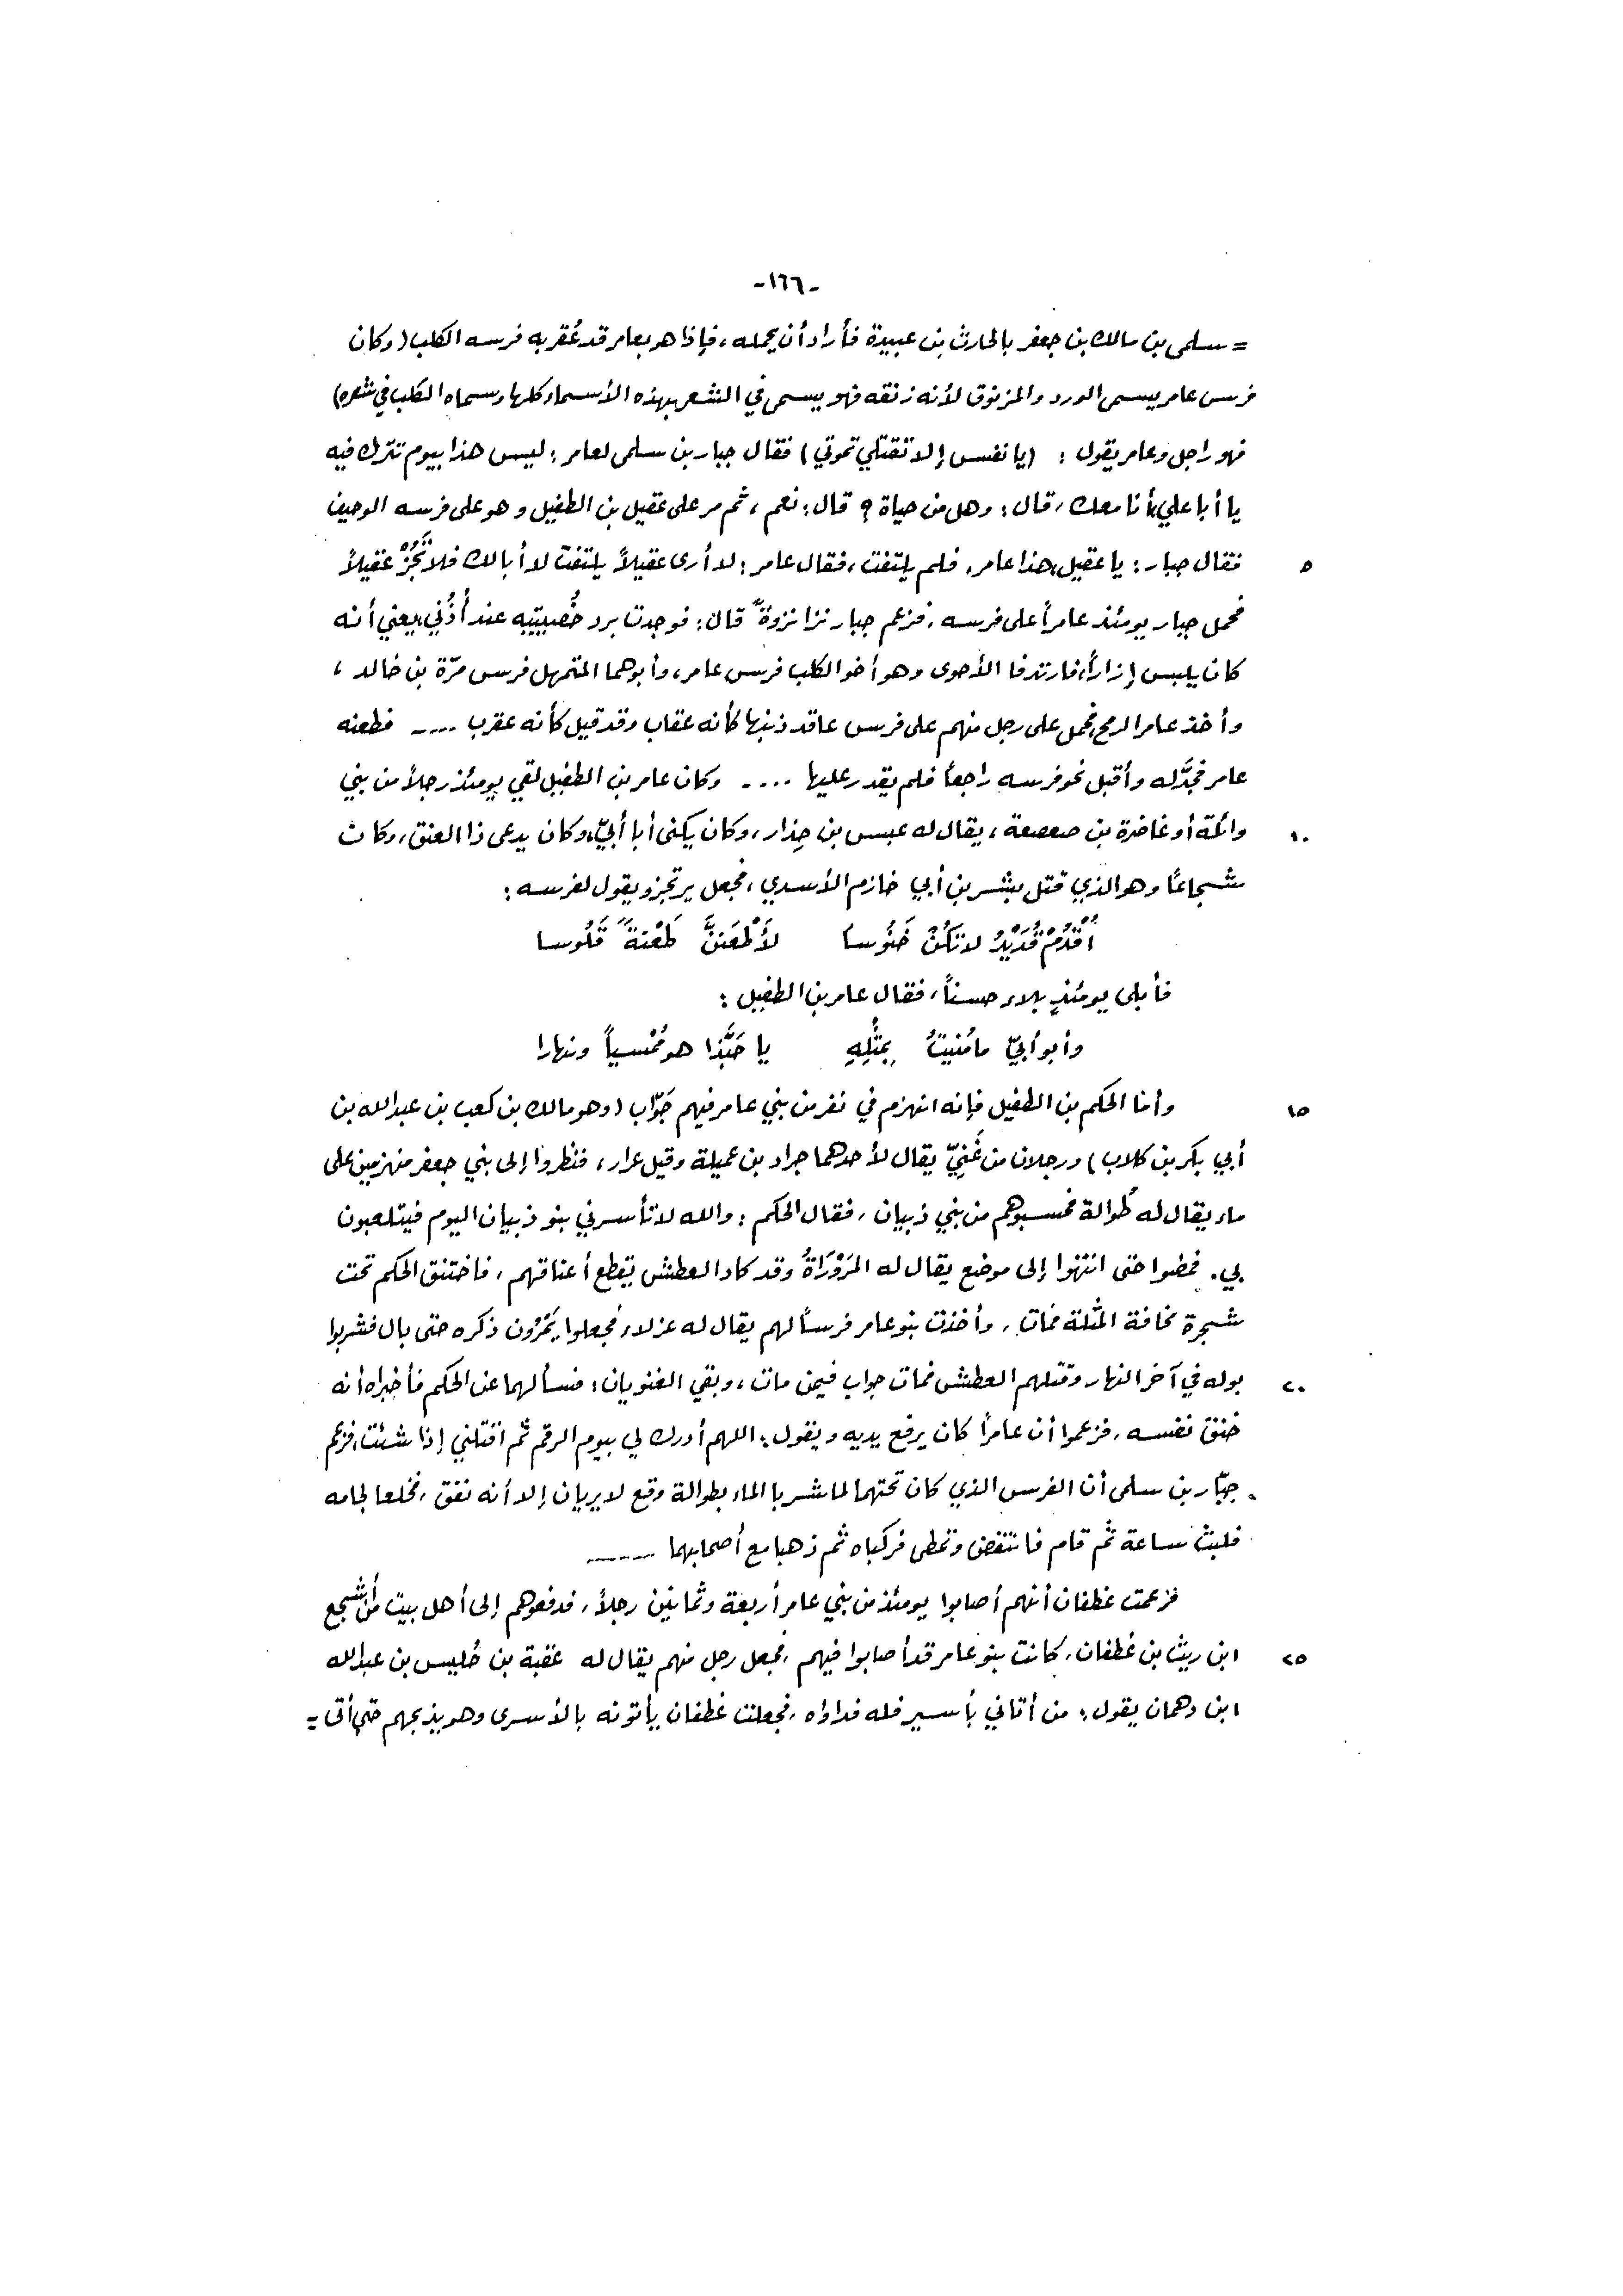 -١٦٦-
= سلمى بن مالك بن جعفر بالحارث بن عبيدة فأراد أن يحمله ، فإذا هو بعامر قد عُقر به فرسه الكلب ( وكان
فرس عامر يسمى الورد والمزنوق لأنه زنقه فهو يسمى في الشعر بهذه الأسماء كلها وسماه الكلب في شعره )
فهو راجل وعامر يقول : ( يا نفس إلا تقتلي تموتي ) فقال جبار بن سلمى لعامر : ليس هذا بيوم تترك فيه
يا أبا علي ، أنا معك ، قال : وهل من حياة ؟ قال : نعم ، ثم مر على عقيل بن الطفيل وهو على فرسه الوحيف
٥ فقال جبار : يا عقيل ، هذا عامر . فلم يلتفت ، فقال عامر : لا أرى عقيلاً يلتفت لا أبا لك فلا عقيلاً
فحمل جبار يومئذ عامراً على فرسه . فزعم جبار نزا نزوةً قال : فوجدت برد خُصييتيه عند أُذُني ، يعني أنه
كان يلبس إزاراً ، فارتدفا الأحوى وهو أخو الكلب فرس عامر ، وأبوهما المتمهل فرس مرّة بن خالد ،
وأخذ عامر الرمح ، فحمل على رجل منهم على فرس عاقد ذنبها كأنه عقاب وقد قيل كأنه عقرب ---- فطعنه
عامر فجدَّله وأقبل نحو فرسه راجعاً فلم يقدر عليها .... وكان عامر بن الطفيل لقي يومئذ رجلاً من بني
١٠ وائلة أو غاضرة بن صعصعة ، يقال له عبس بن حِذار ، وكان يكنى أبا أُبيّ ، وكان يدعى ذا العنق ، وكان
شجاعاً وهو الذي قتل بشر بن أبي خازم الأسدي ، فجعل يرتجز ويقول لفرسه :
أُقْدُمْ قُدَيْدُ لا تَكُنْ خَنُوسا لأَطْعَنَنَّ طَعْنَةً قَلُوسا
فأبلى يومئذٍ بلاء حسناً ، فقال عامر بن الطفيل :
وأبو أُبيّ ما مُنيتُ بِمِثْلِهِ يا حَبَّذا هو مُمْسياً ونهارا
١٥ وأما الحكم بن الطفيل فإنه انهزم في نفر من بني عامر فيهم جَوّاب ( وهو مالك بن كعب بن عبد الله بن
أبي بكر بن كلاب ) ورجلان من غَنِيّ يقال لأحدهما جراد بن عميلة وقيل عرار ، فنظروا إلى بني جعفر منهزمين على
ماء يقال له طُوالة فحسبوهم من بني ذبيان ، فقال الحكم : والله لا تأسرني بنو ذبيان اليوم فيتلعبون
بي . فمضوا حتى انتهوا إلى موضع يقال له المَرَوْرَاةُ وقد كاد العطش يقطع أعناقهم ، فاختنق الحكم تحت
شجرة مخافة المُثلة فمات . وأخذت بنو عامر فرساً لهم يقال له عزلاء فجعلوا يَمْرُون ذكره حتى بال فشربوا
٢٠ بوله في آخر النهار وقتلهم العطش فمات جواب فيمن مات ، وبقي الغنويان : فسألهما عن الحكم فأخبراه أنه
خنق نفسه ، فزعموا أن عامراً كان يرفع يديه ويقول : اللهم أدرك لي بيوم الرقم ثم اقتلني إذا شئت ، فزعم
جبّار بن سلمى أن الفرس الذي كان تحتهما لما شربا الماء بطوالة وقع لا يريان إلا أنه نفق ، فخلعا لجامه
فلبث ساعة ثم قام فانتفض وتمطى فركباه ثم ذهبا مع أصحابهما ------
فزعمت غطفان أنهم أصابوا يومئذ من بني عامر أربعة وثمانين رجلاً ، فدفعوهم إلى أهل بيت من أشجع
٢٥ ابن ريث بن غطفان ، كانت بنو عامر قد أصابوا فيهم ، فجعل رجل منهم يقال له عقبة بن حُليس بن عبد الله
ابن دهمان يقول : من أتاني بأسير فله فداؤه ، فجعلت غطفان يأتونه بالأسرى وهو يذبحهم حتى أتى =